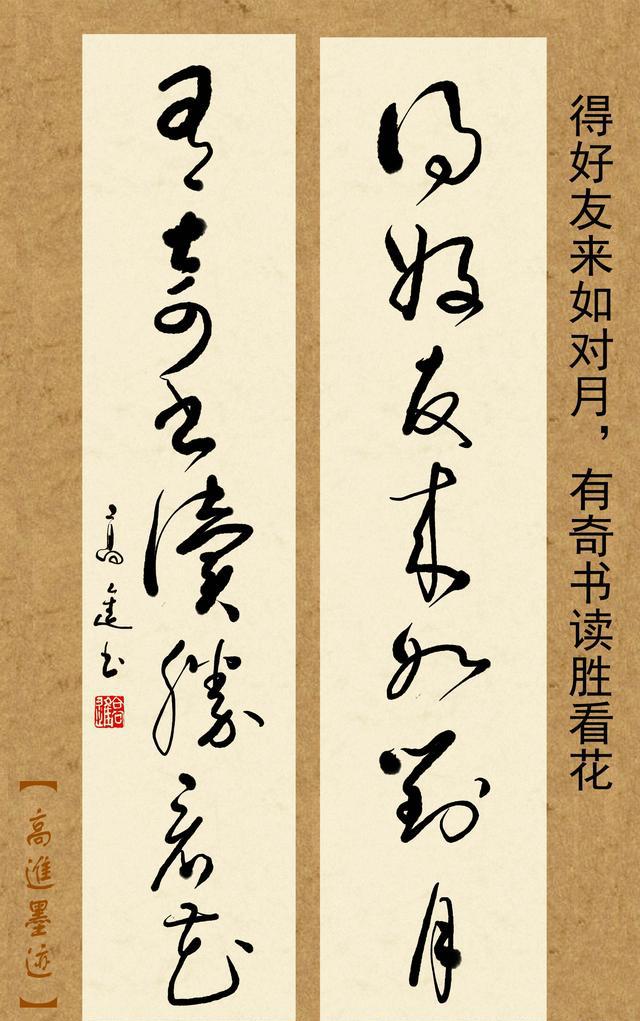 得好友来如对月，有奇书读胜看花
得好友来如對月
有奇書讀勝看花
高進书
【高進墨迹】